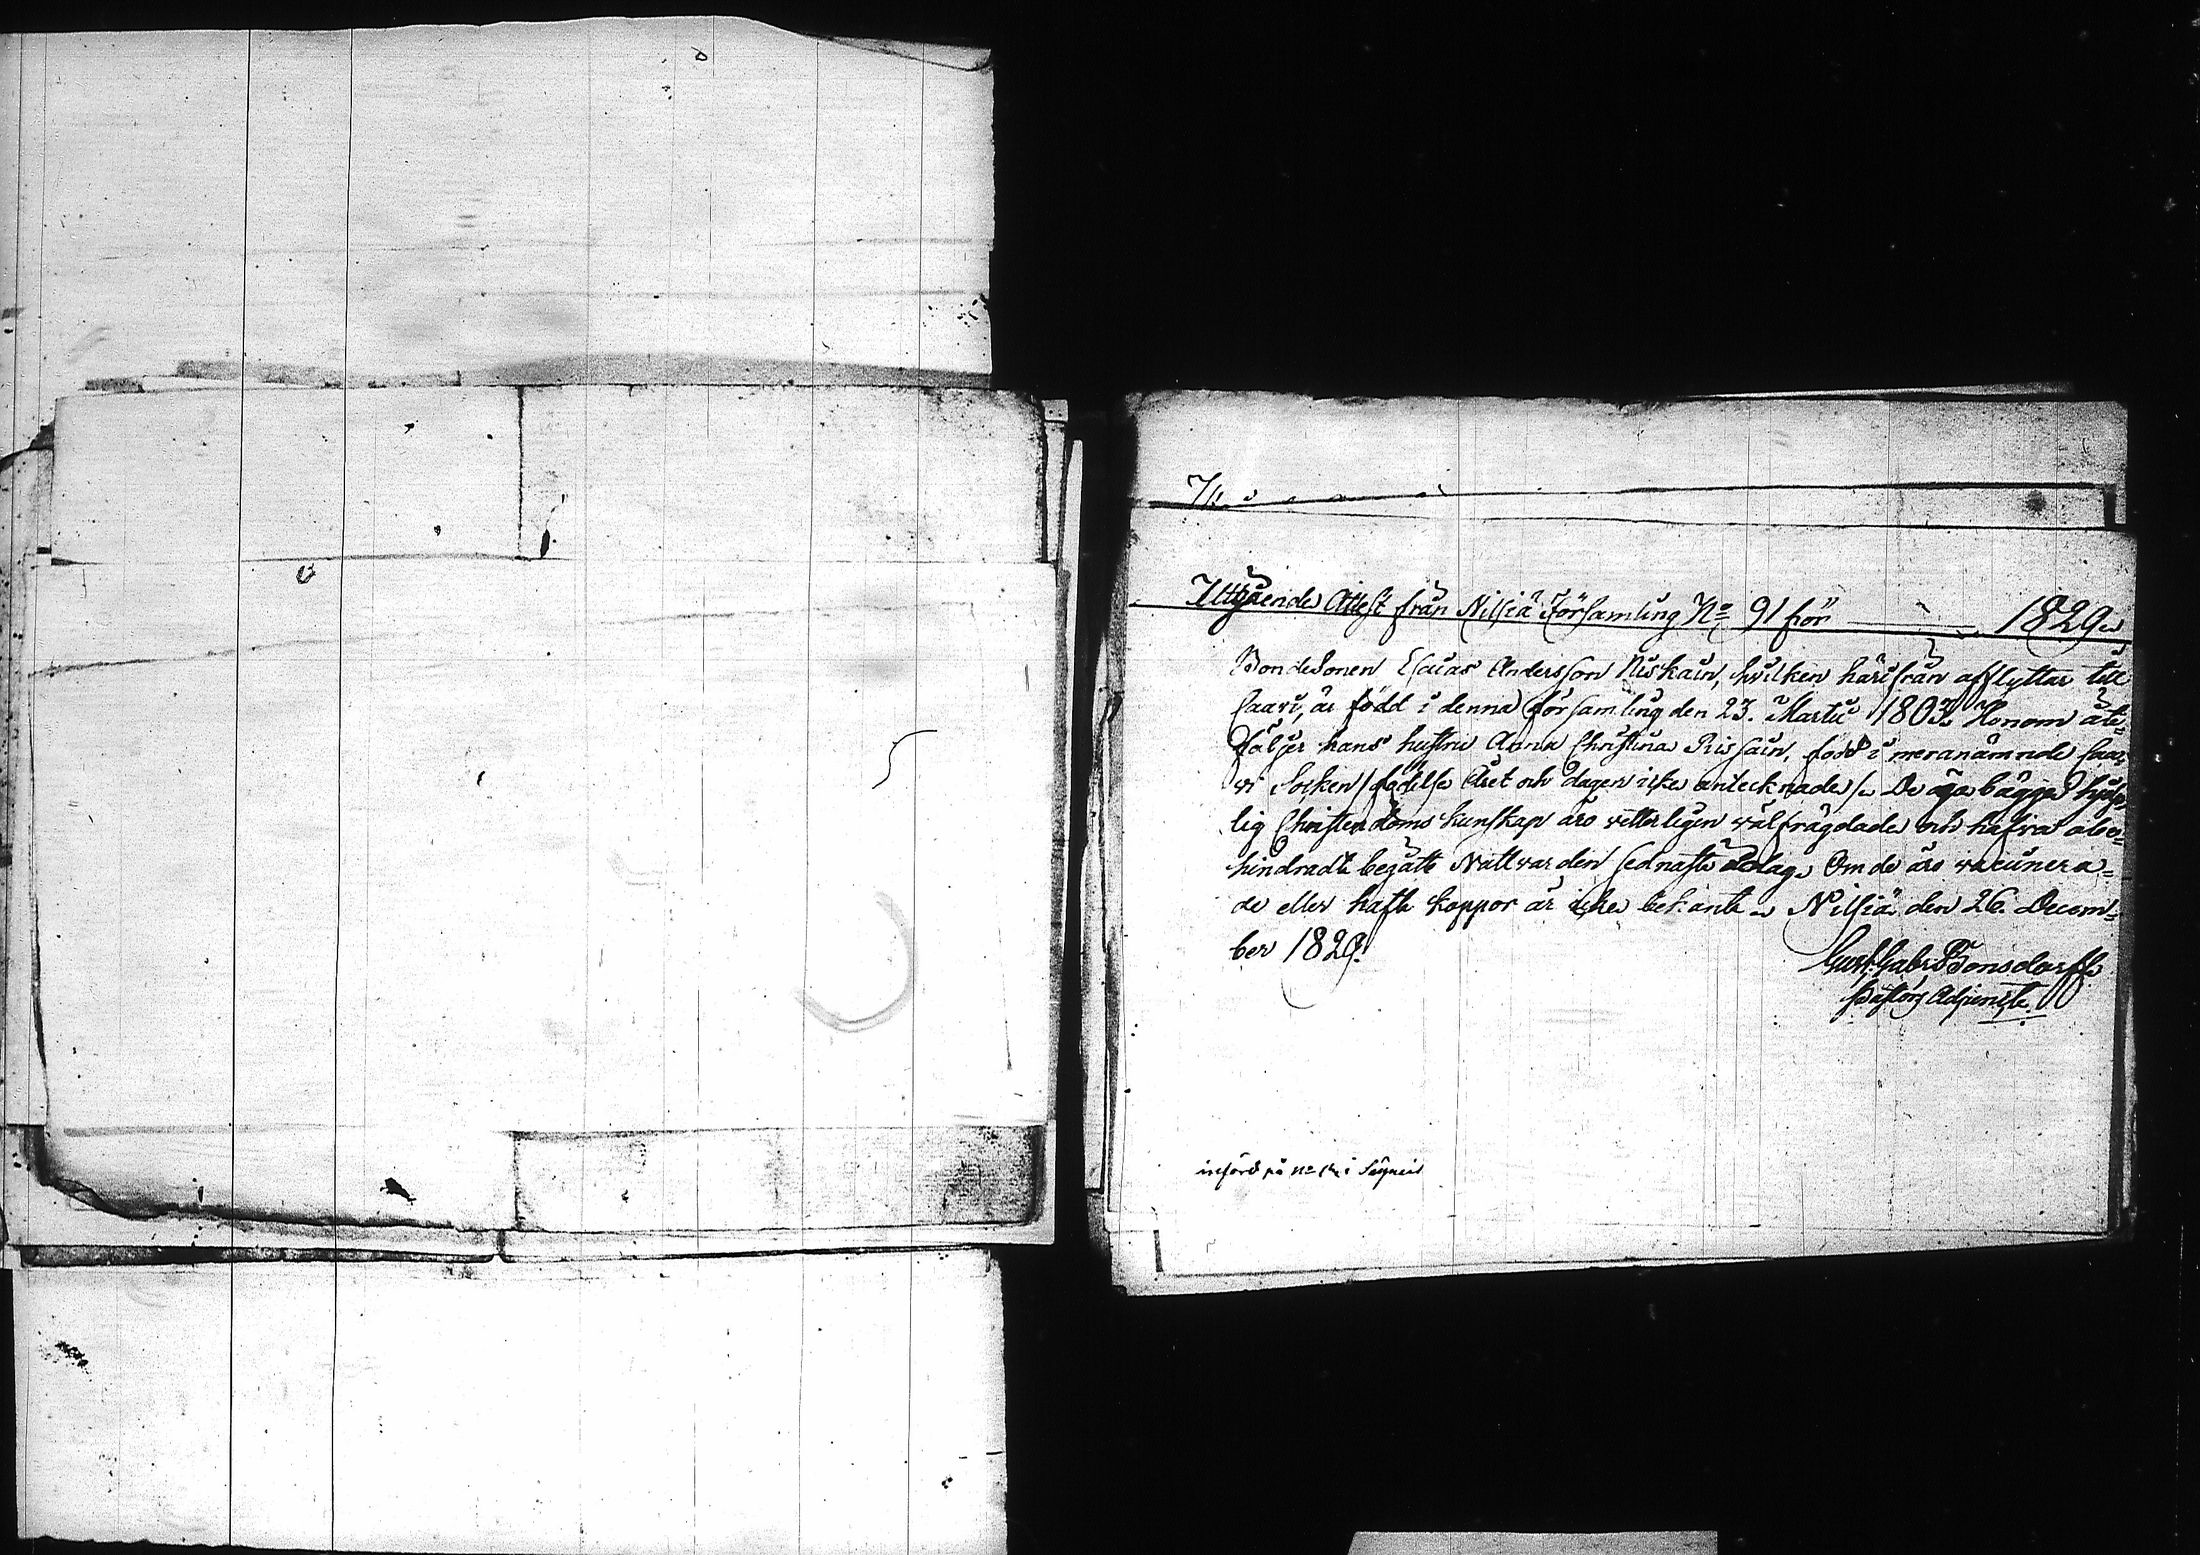 Utgående Attest från Nilsiä Församling No 91 för 1829.
Bondesonen Esaias Andersson Niskain, hwilken härifrån afflyttar till
Iisari, är född i denna församling den 23. Martii 1803. Honom åte=
följer hans hustru Anna Christina Rissain, född i meranämnde
Socken /födelse Året och dagen icke antecknade/. De äga bägge hyfse=
lig Christendoms kunskap äro vitterligen välfrägdade och hafva obe=
hindradt begått Nattvarden sednaste Om de äro vaccinera=
de eller haft koppor är icke bekant. Nilsiä den 26. Decem=
ber 1829.
Gust. Gabr. Bonsdorff
Pastors Adjunct.
införd på No i